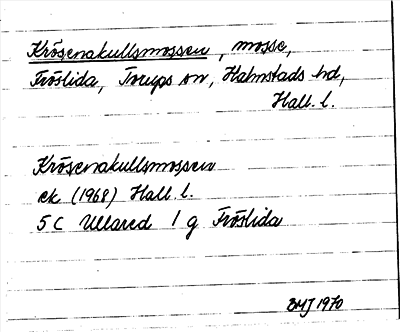 Krösenakullsmossen, mosse,
Fröslida, Torups sn, Halmstads hd,
Hall. l.
Krösenakullsmossen
ek (1968) Hall. l.
5 C Ullared 1 g Fröslida
BMJ 1970